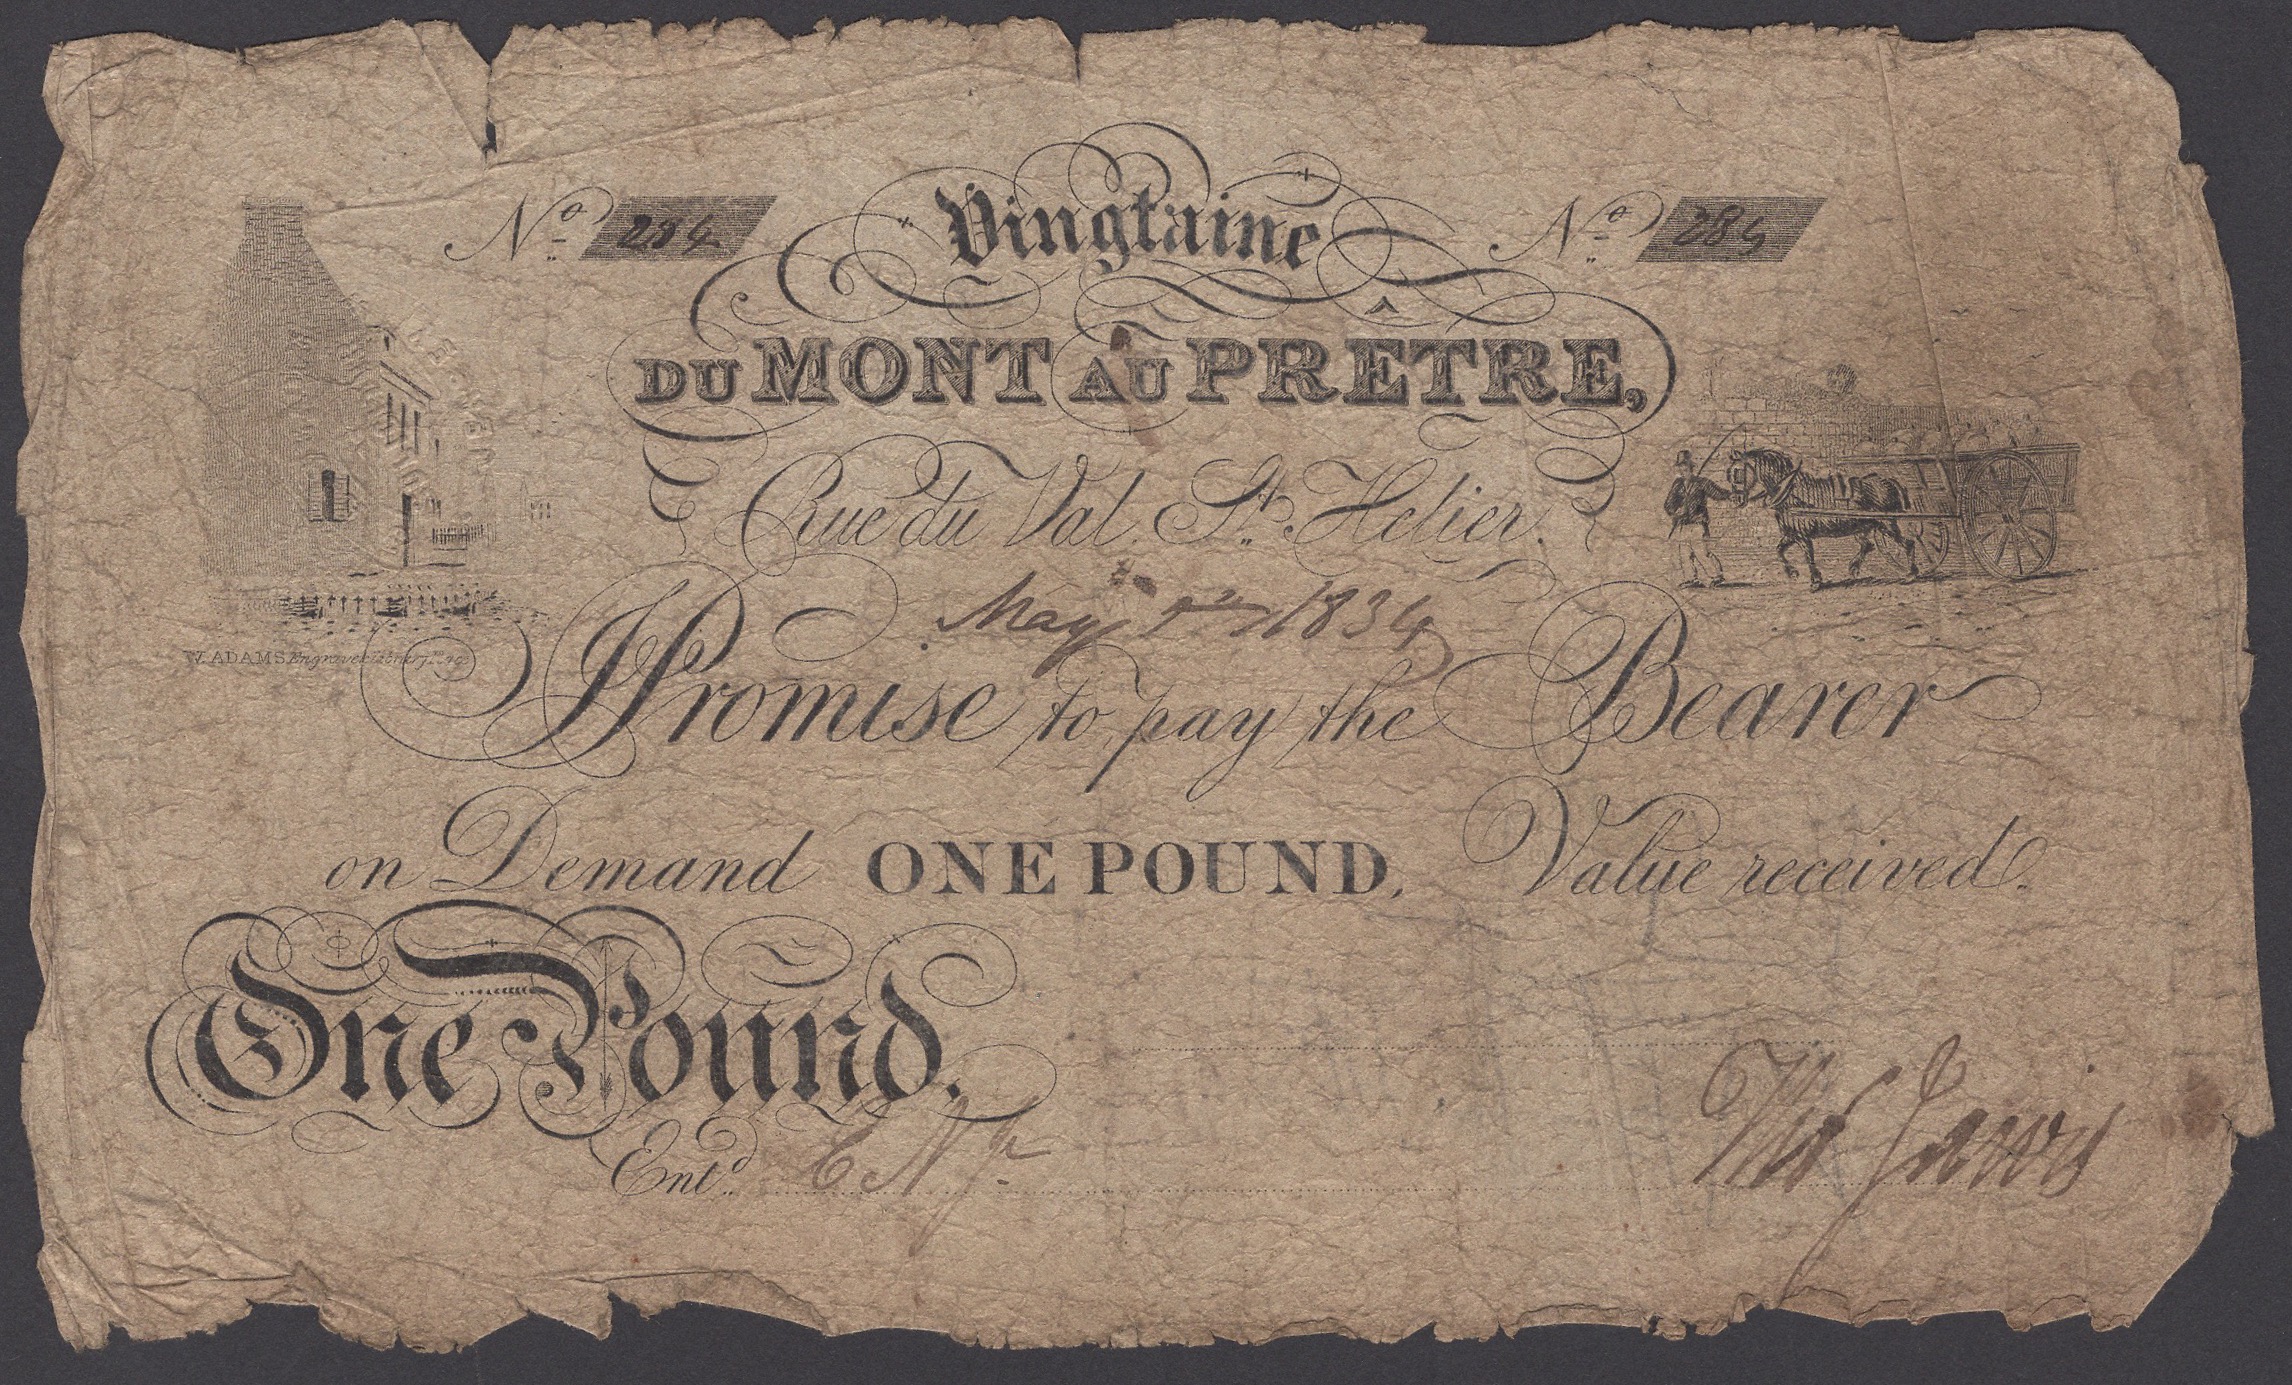 No 284
Vingtaine
No 284
DU MONT AU PRÊTRE,
Rue du Val St. Helier.
May 1834
I Promise to pay the Bearer
on Demand ONE POUND, Value received.
W. ADAMS Engraver
One Pound.
Entd.